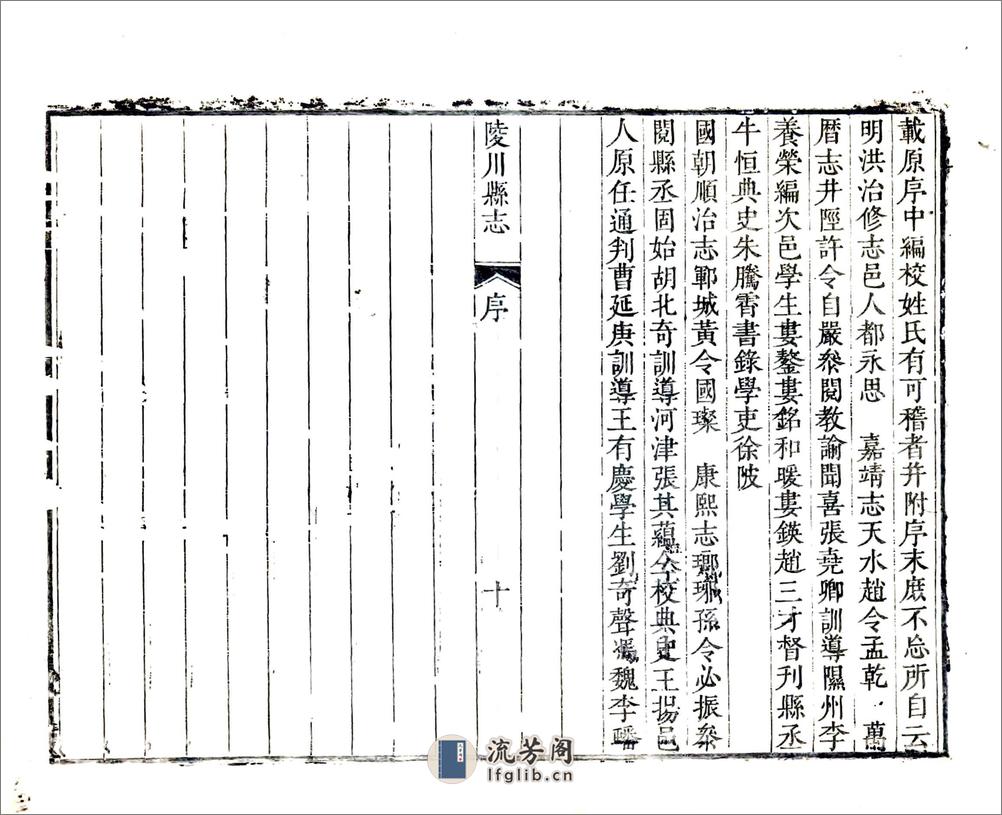 載原序中編校姓氏有可稽者并附序末庶不忘所自云
明洪治修志邑人都永思 嘉靖志天水趙令孟乾 萬
曆志井陘許令自嚴叅閱教諭聞喜張堯卿訓導隰州李
養榮編次邑學生婁鏊婁銘和暖婁鍈趙三才督刋縣丞
牛恒典史朱騰霄書錄學吏徐陂
國朝順治志鄆城黃令國璨 康熙志瑯琊孫令必振叅
閱縣丞固始胡北奇訓導河津張其蘊仝校典史王揚邑
人原任通判曹延庚訓導王有慶學生劉奇聲 魏李皤
陵川縣志
序
十
流芳阁
lfglib.cn